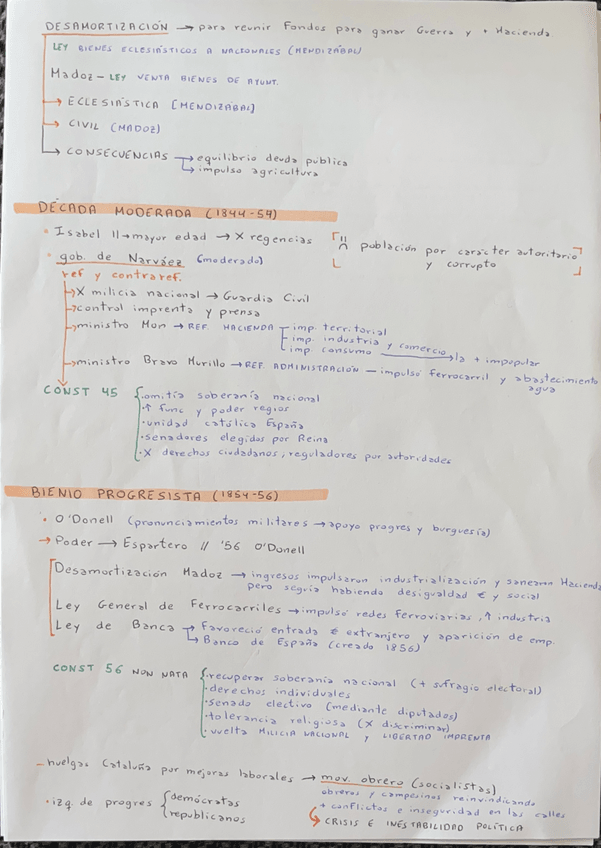 DESAMORTIZACIÓN → para reunir Fondos para ganar Guerra y + Hacienda
LEY BIENES ECLESIÁSTICOS A NACIONALES (MENDIZÁBAL)
Madoz - LEY VENTA BIENES DE AYUNT.
→ ECLESIÁSTICA [MENDIZÁBAL]
→ CIVIL (MADOZ)
→ CONSECUENCIAS → equilibrio deuda pública
→ impulso agricultura
DÉCADA MODERADA (1844-54)
• Isabel II → mayor edad → X regencias
población por carácter autoritario
y corrupto
• gob. de Narváez (moderado)
ref y contraref.
→ X milicia nacional → Guardia Civil
→ control imprenta y prensa
→ ministro Mon → REF. HACIENDA imp. territorial
imp. industria y comercio
imp. consumo → la + impopular
→ ministro Bravo Murillo → REF. ADMINISTRACIÓN - impulsó ferrocarril y abastecimiento
agua
CONST 45 { · omitía soberanía nacional
· ↑ func y poder regios
· unidad católica España
· senadores elegidos por Reina
· X derechos ciudadanos, reguladores por autoridades
BIENIO PROGRESISTA (1854-56)
• O'Donell (pronunciamientos militares → apoyo progres y burguesía)
→ Poder → Espartero // '56 O'Donell
Desamortización Madoz → ingresos impulsaron industrialización y sanearon Hacienda
pero seguía habiendo desigualdad € y social
Ley General de Ferrocarriles → impulsó redes ferroviarias, ↑ industria
Ley de Banca → Favoreció entrada € extranjero y aparición de emp.
→ Banco de España (creado 1856)
CONST 56 NON NATA { · recuperar soberanía nacional (+ sufragio electoral)
· derechos individuales
· senado electivo (mediante diputados)
· tolerancia religiosa (X discriminar)
· vuelta MILICIA NACIONAL y LIBERTAD IMPRENTA
- huelgas Cataluña por mejoras laborales → mov. obrero (socialistas)
obreros y campesinos reinvindicando
+ conflictos e inseguridad en las calles
→ CRISIS E INESTABILIDAD POLÍTICA
• izq. de progres { demócratas
republicanos